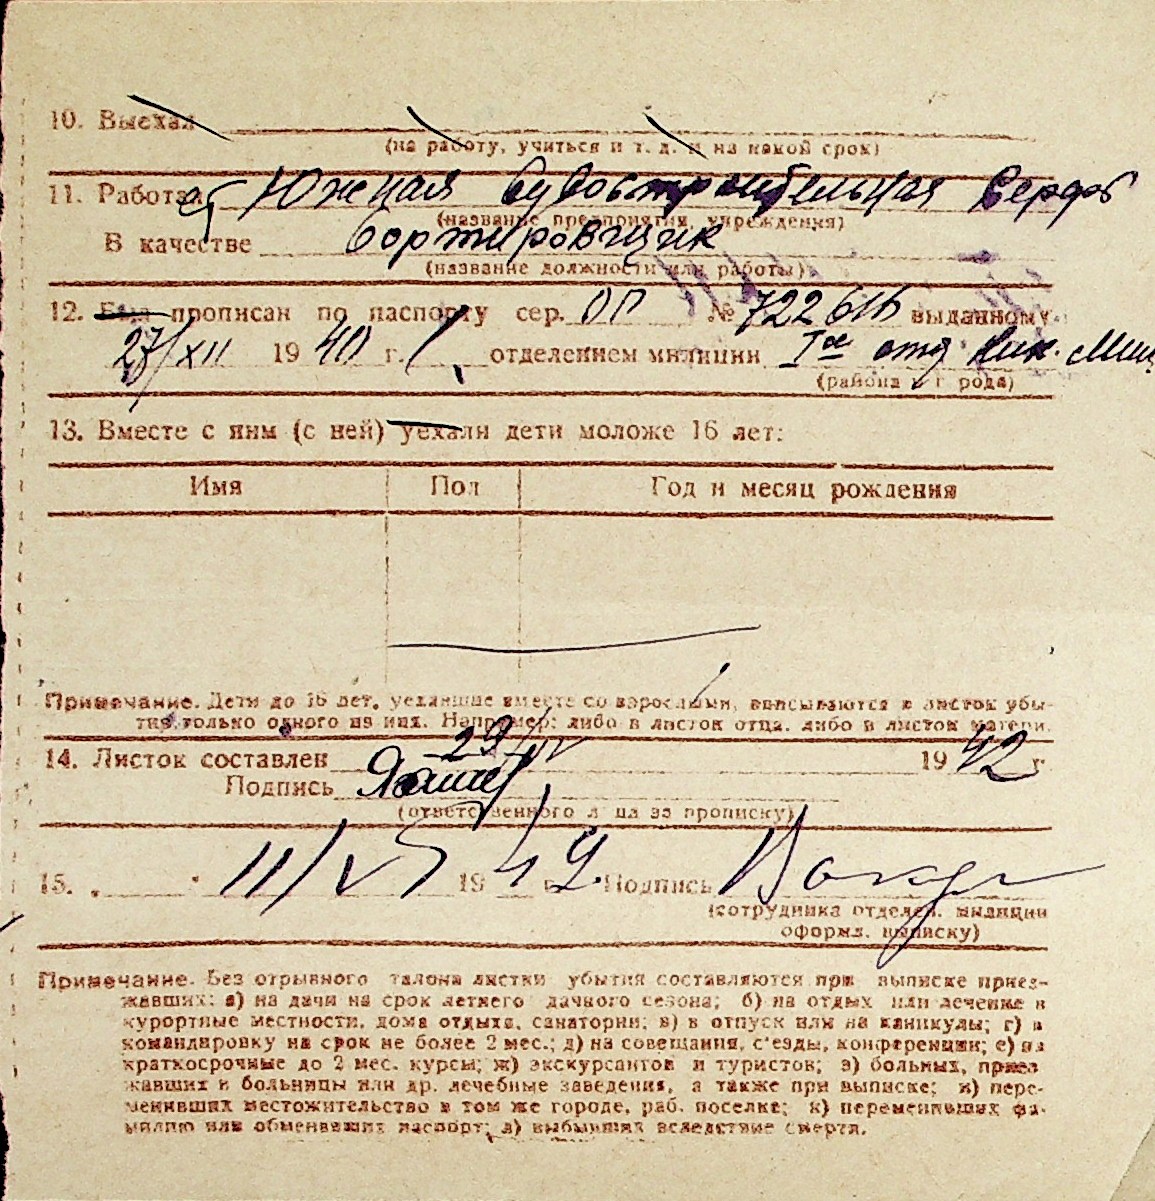 10. Выехал
(на работу, учиться и т. д. и на какой срок)
11. Работает Южная Судостроительная Верфь
(название предприятия, учреждения)
В качестве Сортировщик
(название должности или работы)
12. Был прописан по паспорту сер. ОП № 722616 выданному
27/XII 1940 г. отделением милиции 1ое отд Ник. Мил
(района и города)
13. Вместе с ним (с ней) уехали дети моложе 16 лет:
Имя Пол Год и месяц рождения
Примечание. Дети до 16 лет, уехавшие вместе со взрослыми, вписываются в листок убы-
тия только одного из них. Например: либо в листок отца, либо в листок матери.
14. Листок составлен 29/IV 1942 г.
Подпись
(ответственного лица за прописку)
15. 11/V 1942 г. Подпись
(сотрудника отделен. милиции
оформ. выписку)
Примечание. Без отрывного талона листки убытия составляются при выписке приез-
жавших: а) на дачи на срок летнего дачного сезона; б) на отдых или лечение в
курортные местности, дома отдыха, санатории; в) в отпуск или на каникулы; г) в
командировку на срок не более 2 мес.; д) на совещания, с'езды, конференции; е) на
краткосрочные до 2 мес. курсы; ж) экскурсантов и туристов; з) больных, приез
жавших в больницы или др. лечебные заведения, а также при выписке; и) пере-
менивших местожительство в том же городе, раб. поселке; к) переменивших фа-
милию или обменявших паспорт; л) выбывших вследствие смерти.